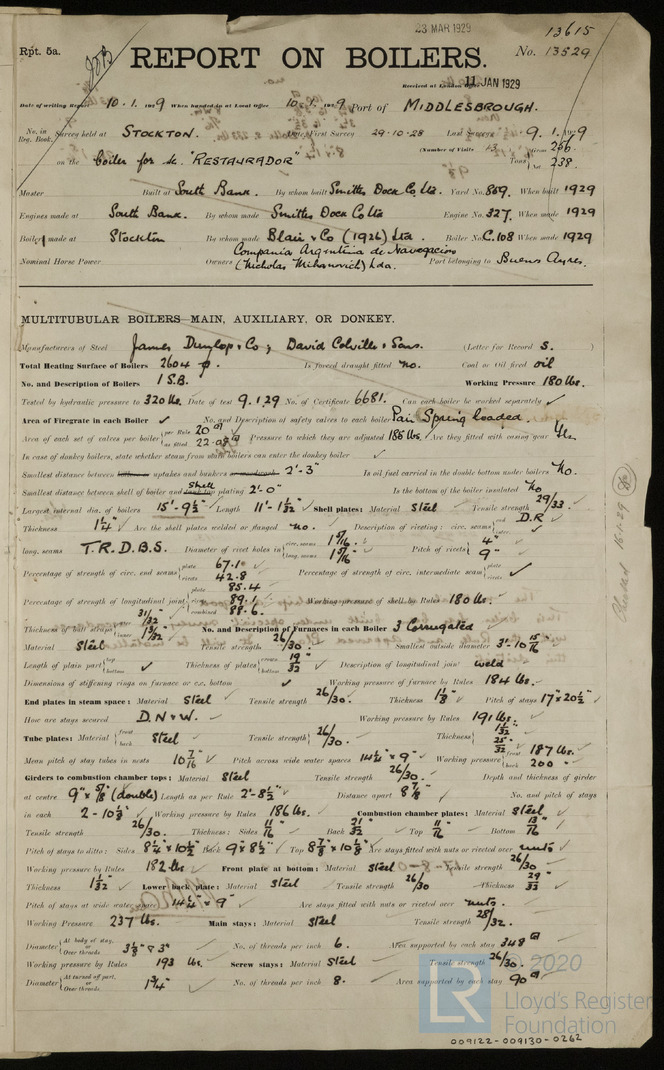 23 MAR 1929
13615
Rpt. 5a.
REPORT ON BOILERS.
No. 13529
Received at London Office 11 JAN 1929
Date of writing Report 10.1.1929 When handed in at Local Office 10.1.1929 Port of MIDDLESBROUGH.
No. in Reg. Book. Survey held at STOCKTON. Date, First Survey 29.10.28 Last Survey 9.1.1929
(Number of Visits 13) Gross 256
on the boiler for s.k. "RESTAURADOR" Tons Net 238.
Master Built at South Bank. By whom built Smiths Dock Co. Ltd. Yard No. 869. When built 1929
Engines made at South Bank. By whom made Smiths Dock Co Ltd Engine No. 327. When made 1929
Boiler made at Stockton By whom made Blair & Co (1926) Ltd. Boiler No. C.108 When made 1929
Nominal Horse Power Owners Compania Argentina de Navegacion (Nicholas Mihanovich) Lda. Port belonging to Buenos Ayres.
MULTITUBULAR BOILERS MAIN, AUXILIARY, OR DONKEY.
Manufacturers of Steel James Dunlop & Co; David Colville & Sons. (Letter for Record S. )
Total Heating Surface of Boilers 2604 Is forced draught fitted No. Coal or Oil fired oil
No. and Description of Boilers 1 S.B. Working Pressure 180 lbs.
Tested by hydraulic pressure to 320 lbs. Date of test 9.1.29 No. of Certificate 6681. Can each boiler be worked separately ✓
Area of Firegrate in each Boiler ✓ No. and Description of safety valves to each boiler Pair Spring loaded.
Area of each set of valves per boiler per Rule 20 as fitted 22.08 Pressure to which they are adjusted 185 lbs. Are they fitted with easing gear Yes
In case of donkey boilers, state whether steam from main boilers can enter the donkey boiler ✓
Smallest distance between boilers or uptakes and bunkers or woodwork 2'-3" Is oil fuel carried in the double bottom under boilers No.
Smallest distance between shell of boiler and shell plating 2'-0" Is the bottom of the boiler insulated No
Largest internal dia. of boilers 15'-9½" Length 11'-1 1/32" Shell plates: Material Steel Tensile strength 29/33.
Thickness 1¼" Are the shell plates welded or flanged No. Description of riveting: circ. seams end D.R
long. seams T.R.D.B.S. Diameter of rivet holes in circ. seams 1 5/16. long. seams 1 5/16" Pitch of rivets 4" 9"
Percentage of strength of circ. end seams plate 67.1 rivets 42.8 Percentage of strength of circ. intermediate seam plate rivets ✓
Percentage of strength of longitudinal joint plate 85.4 rivets 89.1 combined 88.6. Working pressure of shell by Rules 180 lbs.
Thickness of butt straps outer 31/32 inner 1 3/32 No. and Description of Furnaces in each Boiler 3 Corrugated
Material Steel Tensile strength 26/30. Smallest outside diameter 3'-10 15/16
Length of plain part top bottom ✓ Thickness of plates crown bottom 19/32" Description of longitudinal joint weld
Dimensions of stiffening rings on furnace or c.c. bottom ✓ Working pressure of furnace by Rules 184 lbs.
End plates in steam space: Material Steel Tensile strength 26/30. Thickness 1⅛" Pitch of stays 17" x 20½"
How are stays secured D.N & W. Working pressure by Rules 191 lbs.
Tube plates: Material front back Steel Tensile strength 26/30. Thickness 1 1/32 25/32"
Mean pitch of stay tubes in nests 10 7/16" Pitch across wide water spaces 14¼" x 9" Working pressure front 187 lbs. back 200 "
Girders to combustion chamber tops: Material Steel Tensile strength 26/30. Depth and thickness of girder
at centre 9" x 5/8" (double) Length as per Rule 2'-8½" Distance apart 8⅞" No. and pitch of stays
in each 2 - 10⅛" Working pressure by Rules 186 lbs. Combustion chamber plates: Material Steel
Tensile strength 26/30. Thickness: Sides 11/16 Back 21/32 Top 11/16" Bottom 13/16
Pitch of stays to ditto: Sides 8¼" x 10½" Back 9" x 8½" Top 8⅞" x 10⅛" Are stays fitted with nuts or riveted over nuts
Working pressure by Rules 182 lbs Front plate at bottom: Material Steel Tensile strength 26/30
Thickness 1 1/32" Lower back plate: Material Steel Tensile strength 26/30 Thickness 29/32"
Pitch of stays at wide water space 14¼" x 9" Are stays fitted with nuts or riveted over nuts.
Working Pressure 237 lbs. Main stays: Material Steel Tensile strength 28/32.
Diameter At body of stay, or Over threads 3⅛" & 3" No. of threads per inch 6. Area supported by each stay 348
Working pressure by Rules 193 lbs. Screw stays: Material Steel Tensile strength 26/30.
Diameter At turned off part, or Over threads 1¾" No. of threads per inch 8. Area supported by each stay 90
© 2020
LR
Lloyd's Register
Foundation
009122-009130-0262